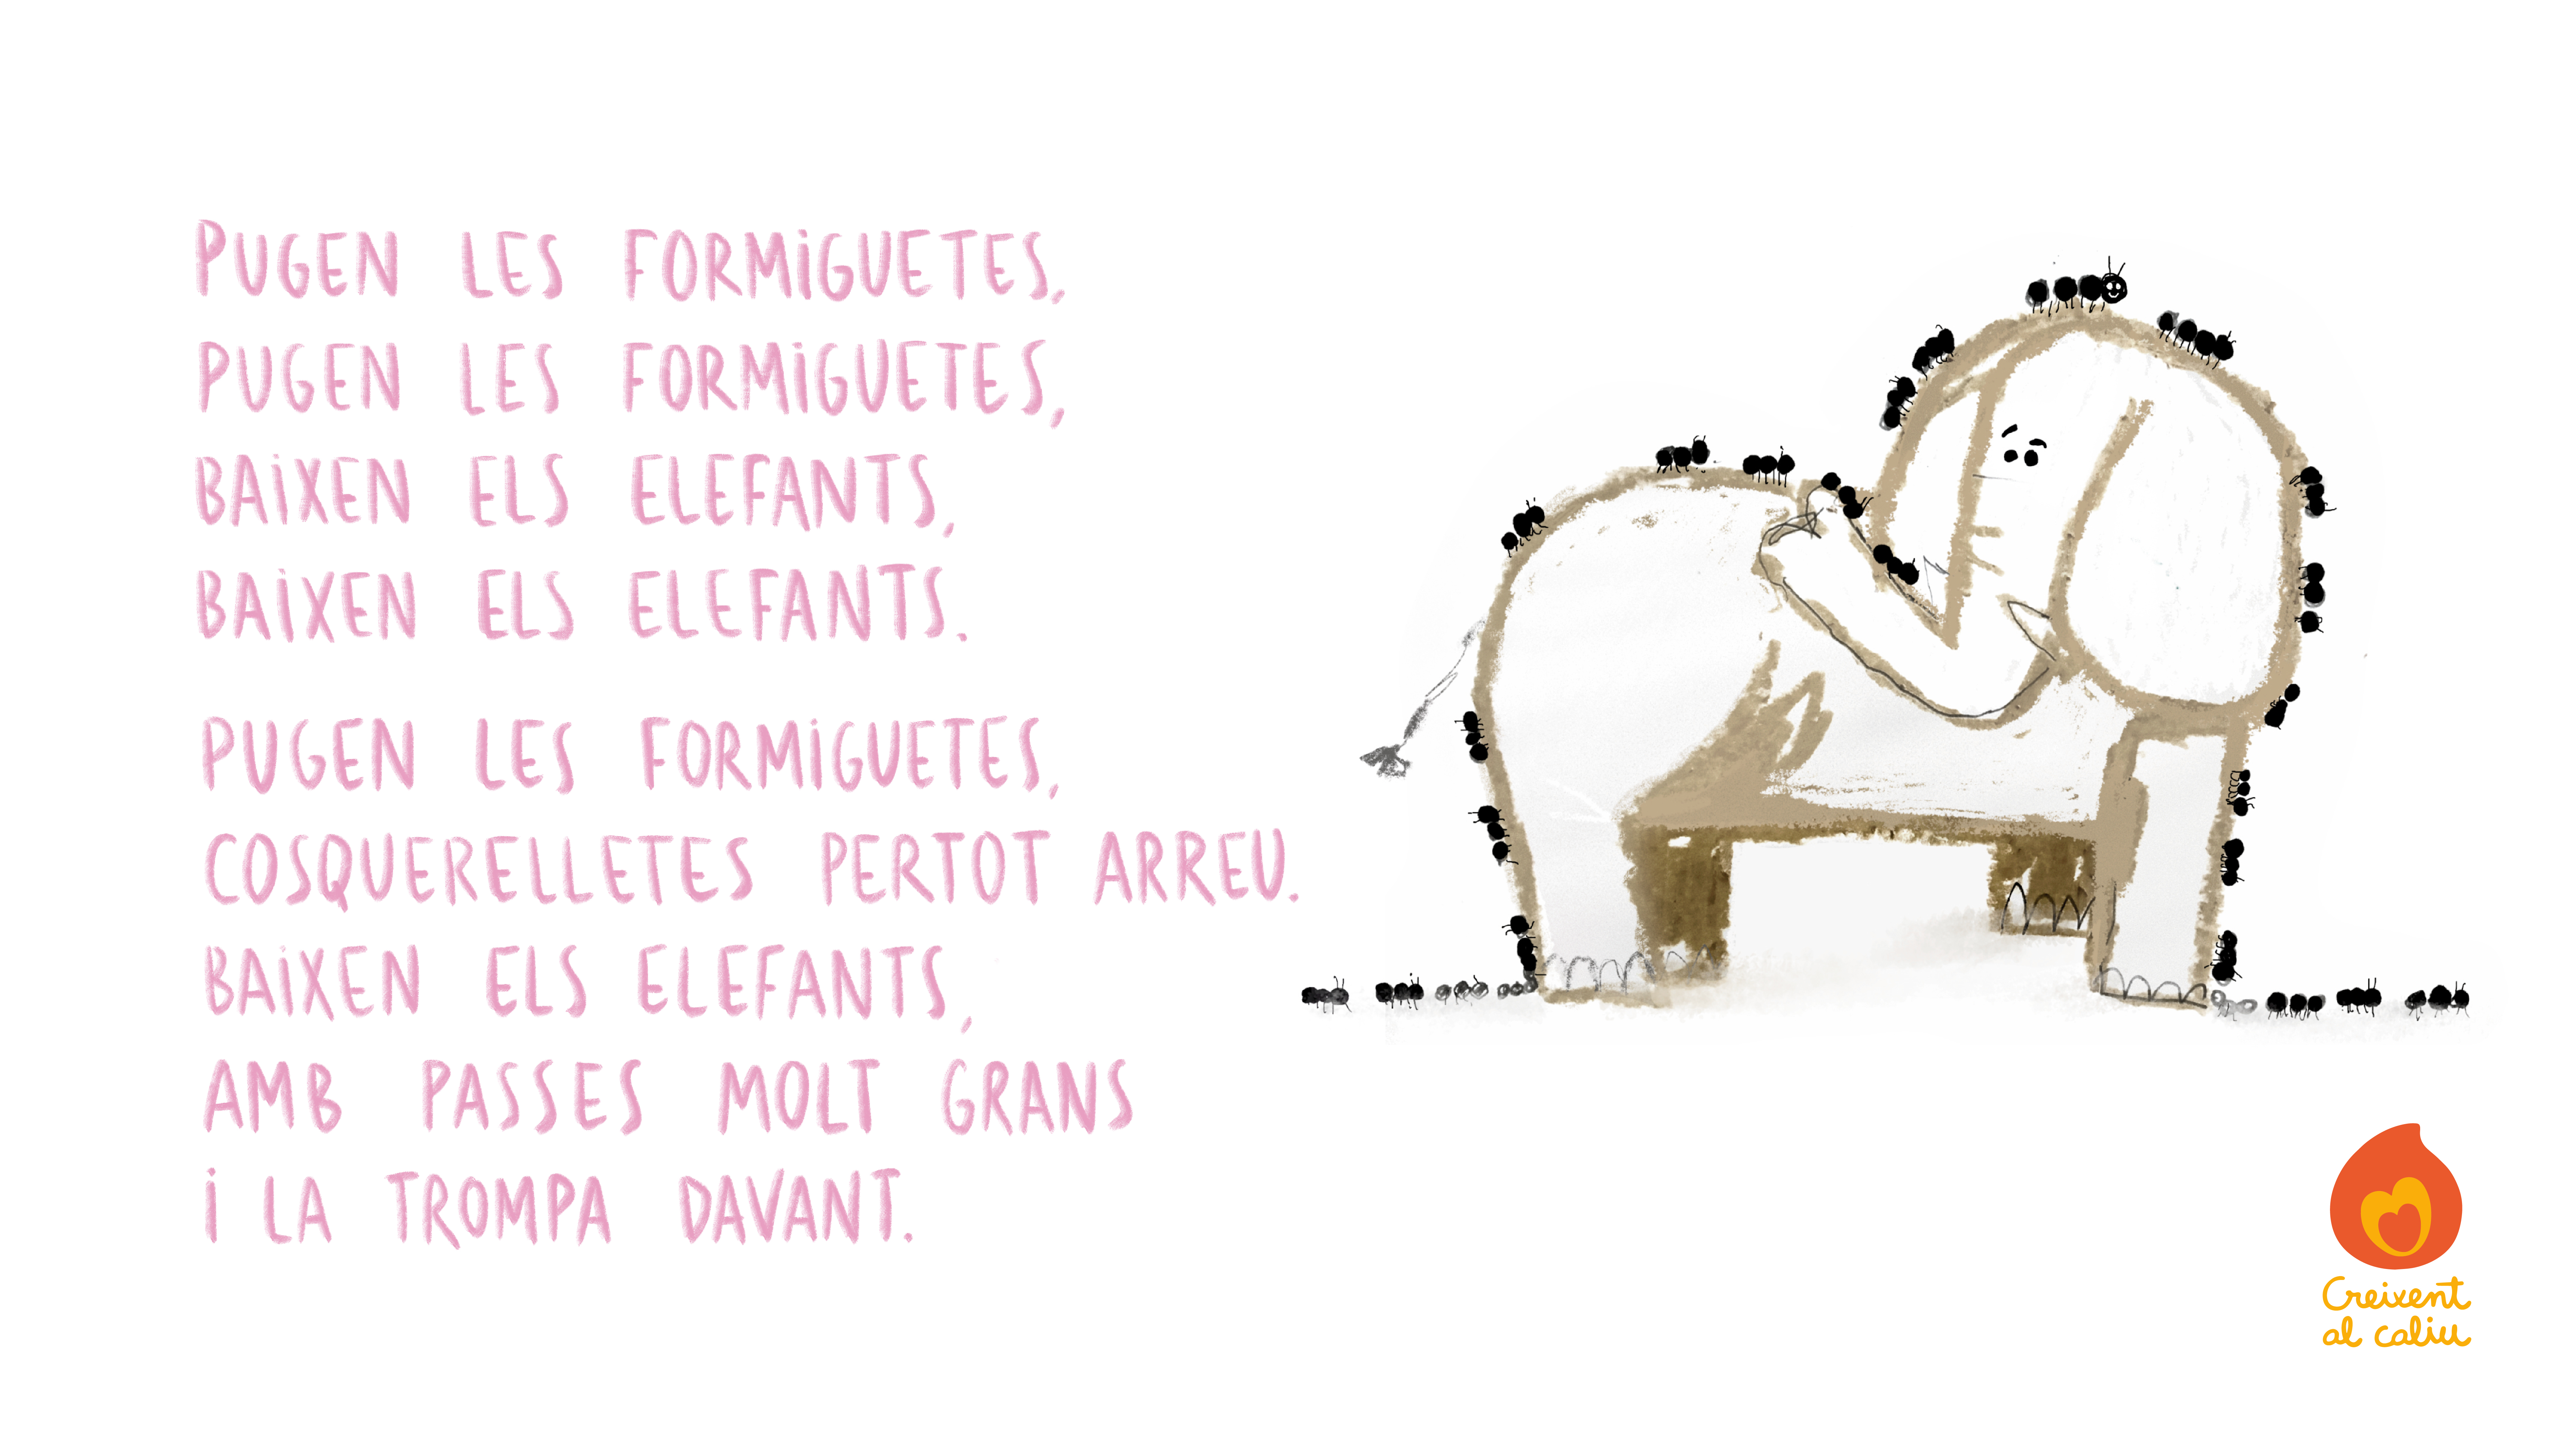 PUGEN LES FORMiGUETES,
PUGEN LES FORMiGUETES,
BAiXEN ELS ELEFANTS,
BAiXEN ELS ELEFANTS.
PUGEN LES FORMiGUETES,
COSQUERELLETES PERTOT ARREU.
BAiXEN ELS ELEFANTS,
AMB PASSES MOLT GRANS
i LA TROMPA DAVANT.
Creixent
al caliu